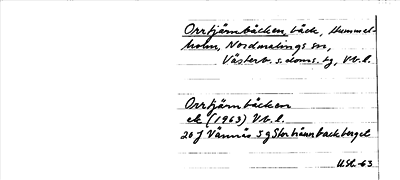 Orrtjärnbäcken, bäck, Hummel-
holm, Nordmalings sn,
Västerb. s. doms. tg, Vb. l.
Orrtjärnbäcken
ek (1963) Vb. l.
20 J Vännäs 5 g Stortjärnbackberget